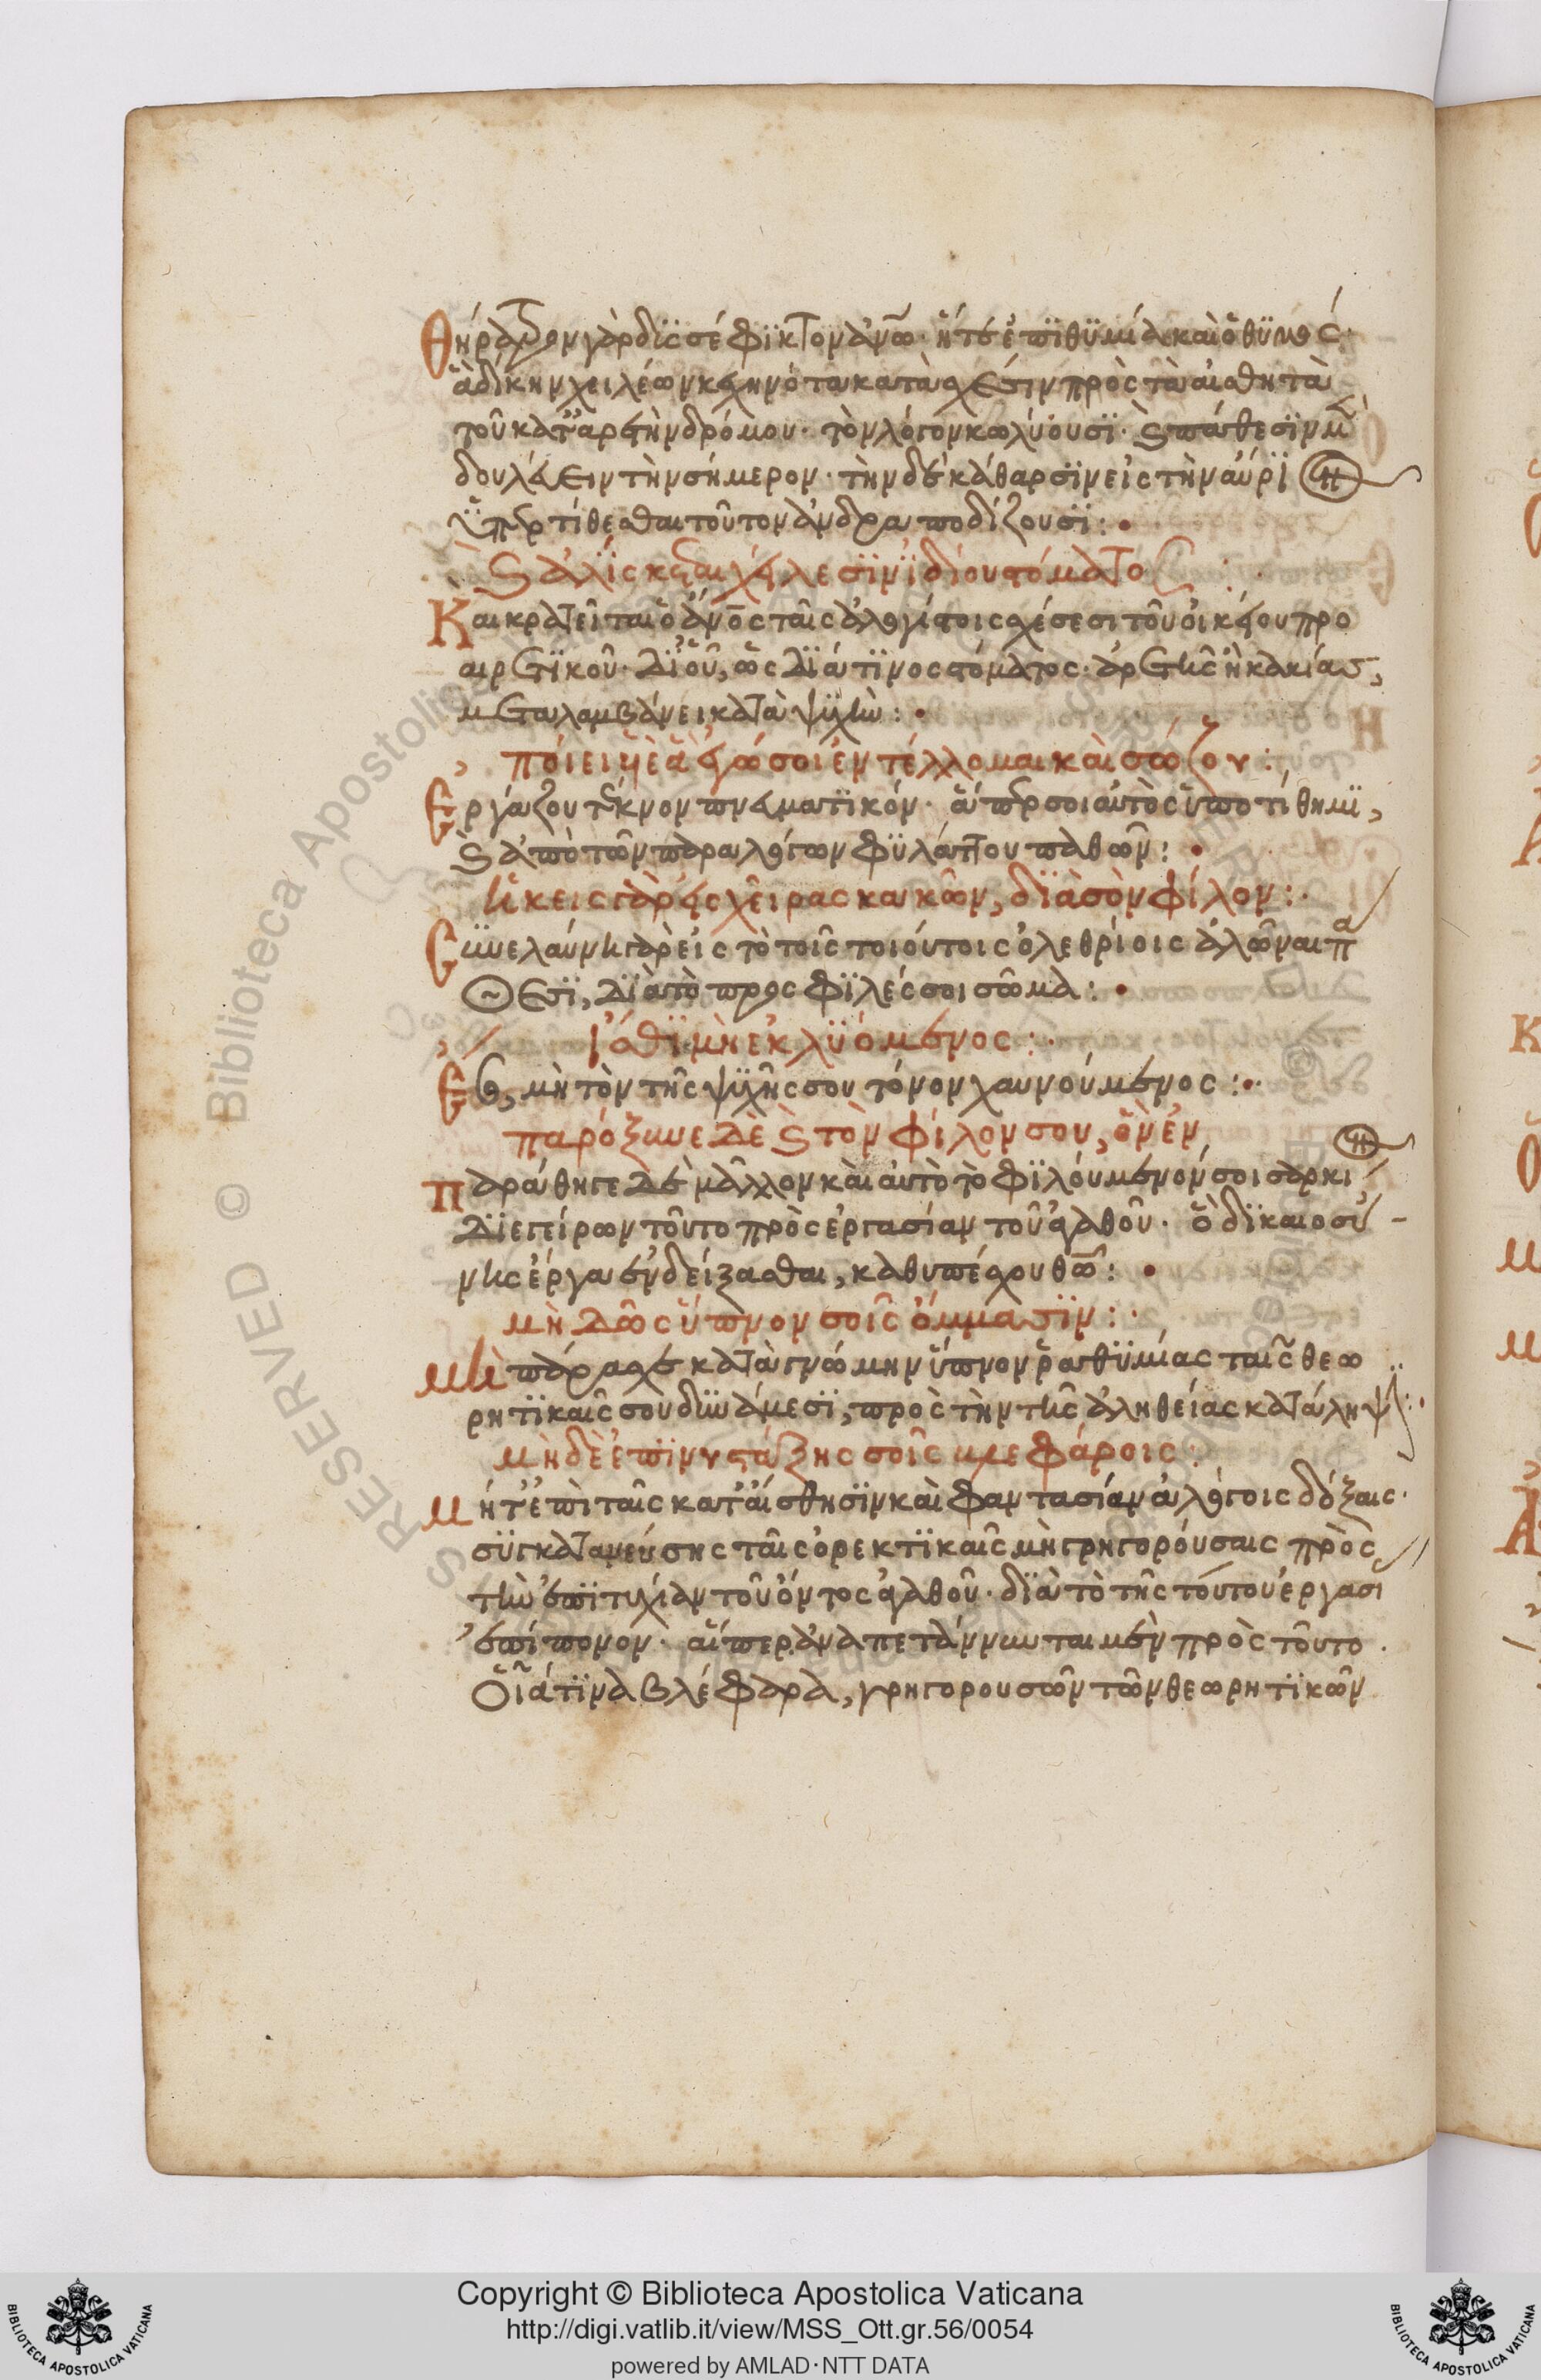 Θήρατρον γὰρ δισσὲ φικτὸν ἀνῶ· ἥτε ἐπϊθϋμία καὶ ὁ θϋμὸς·
ἀδίκην χειλέων κεχηνότα κατὰ σχέσιν πρὸς τὰ αἰσθητὰ
τοῦ κατ' ἀρετὴν δρόμου· τὸν λόγον κωλύουσϊ· καὶ πάθεσϊν μὲν
δουλεύειν τὴν σήμερον· τὴν δὲ κάθαρσϊν εἰς τὴν αὔρϊ
ὑπερτίθεσθαι τοῦτον ἀνδραποδίζουσϊ:
καὶ ἁλίσκεται χείλεσϊν ἰδίου στόματος
Και κρατεῖται ὁ ἄνος ταῖς ἀλογίστοις σχέσεσι τοῦ οἰκείου προ
αιρετϊκοῦ· δι' οὗ, ὡς διά τϊνος στόματος· ἀρετῆς ἢ κακίας,
μεταλαμβάνει κατὰ ψϋχὴν:
ποίει υἱὲ ἃ ἐγώ σοι ἐντέλλομαι καὶ σώζου:
Εργάζου τέκνον πνευματϊκόν· ἅπερ σοι αὐτὸς ὑποτίθημϊ,
καὶ ἀπὸ τῶν παραλόγων φϋλάττου παθῶν:
ἥκεις γὰρ εἰς χεῖρας κακῶν, διὰ σὸν φίλον:
Συνελαύνῃ γὰρ εἰς τὸ τοῖς τοιούτοις ὀλεθρίοις ἁλῶναι πα
θεσϊ, διὰ τὸ προσφϊλές σοι σῶμα:
ἴσθϊ μὴ ἐκλϋόμενος:
Εσο, μὴ τὸν τῆς ψϋχῆς σου τόνον χαυνούμενος:
παρόξυνε δὲ καὶ τὸν φίλον σου, ὃν ἐν
Παράθηγε δὲ μᾶλλον καὶ αὐτὸ τὸ φϊλούμενόν σοι σαρκί
διεγείρων τοῦτο πρὸς ἐργασίαν τοῦ ἀγαθοῦ· ὃ δϊκαιοσύ-
νης ἔργα ἐνδείξασθαι, καθυπέσχου θῶ:
μὴ δῶς ὕπνον σοῖς ὄμμασϊν:
Μὴ πάρασχε κατὰ γνώμην ὕπνον ῥαθϋμίας ταῖς θεω
ρητϊκαῖς σου δυνάμεσϊ, πρὸς τὴν τῆς ἀληθείας κατάληψϊν:
μὴ δὲ ἐπϊνυστάξῃς σοῖς βλεφάροις:
Μήτ' ἐπὶ ταῖς κατ' αἴσθησϊν καὶ φαντασίαν ἀλόγοις δόξαις·
σϋγκατανεύσῃς ταῖς ὀρεκτϊκαῖς μὴ γρηγορούσαις πρὸς
τὴν ἐπϊτυχίαν τοῦ ὄντος ἀγαθοῦ· διὰ τὸ τῆς τούτου ἐργασί
ἐπίπονον· αἵπερ ἀναπετάννυνται μὲν πρὸς τοῦτο·
οἷά τϊνα βλέφαρα, γρηγορουσῶν τῶν θεωρητϊκῶν
RESERVED © Biblioteca Apostolica
Copyright © Biblioteca Apostolica Vaticana
http://digi.vatlib.it/view/MSS_Ott.gr.56/0054
powered by AMLAD·NTT DATA
BIBLIOTECA APOSTOLICA VATICANA
BIBLIOTECA APOSTOLICA VATICANA